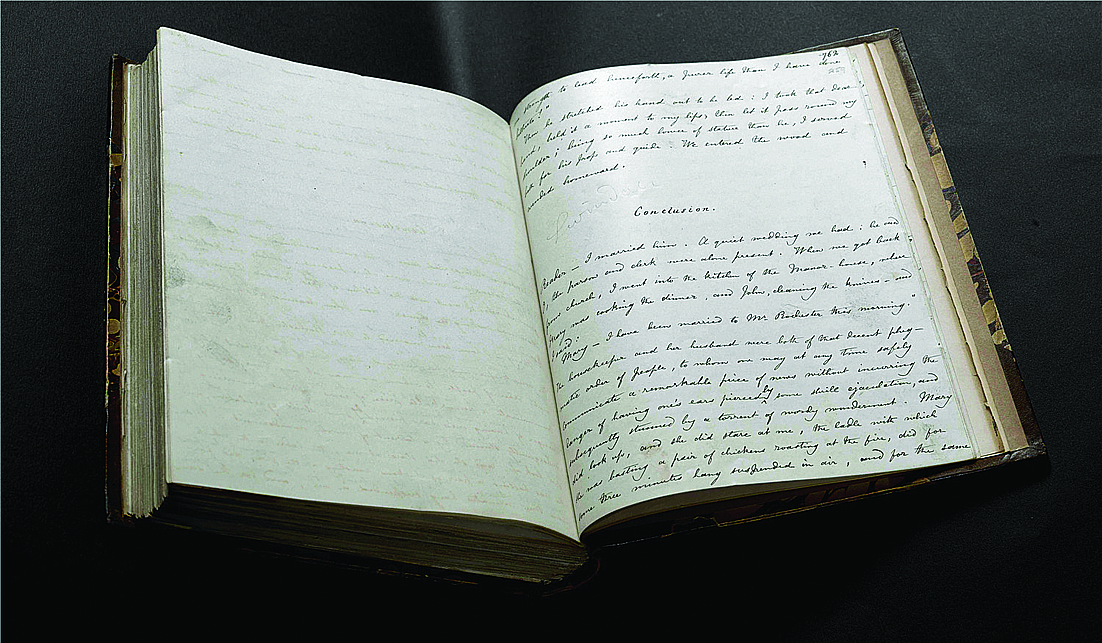 762
strength to lead henceforth, a purer life than I have done
hitherto!"
Then he stretched his hand out to be led: I took that dear
hand, held it a moment to my lips, then let it pass round my
shoulder; being so much lower of stature than he, I served
both for his prop and guide. We entered the wood and
wended homeward.
Conclusion.
Reader — I married him. A quiet wedding we had: he and
I, the parson and clerk were alone present. When we got back
from church, I went into the kitchen of the Manor-house, where
Mary was cooking the dinner, and John, cleaning the knives — and
I said:
"Mary — I have been married to Mr Rochester this morning."
The housekeeper and her husband were both of that decent phleg-
matic order of people, to whom one may at any time safely
communicate a remarkable piece of news without incurring the
danger of having one's ears pierced by some shrill ejaculation, and
subsequently stunned by a torrent of wordy wonderment. Mary
did look up, and she did stare at me, the ladle with which
she was basting a pair of chickens roasting at the fire, did for
some three minutes hang suspended in air, and for the same